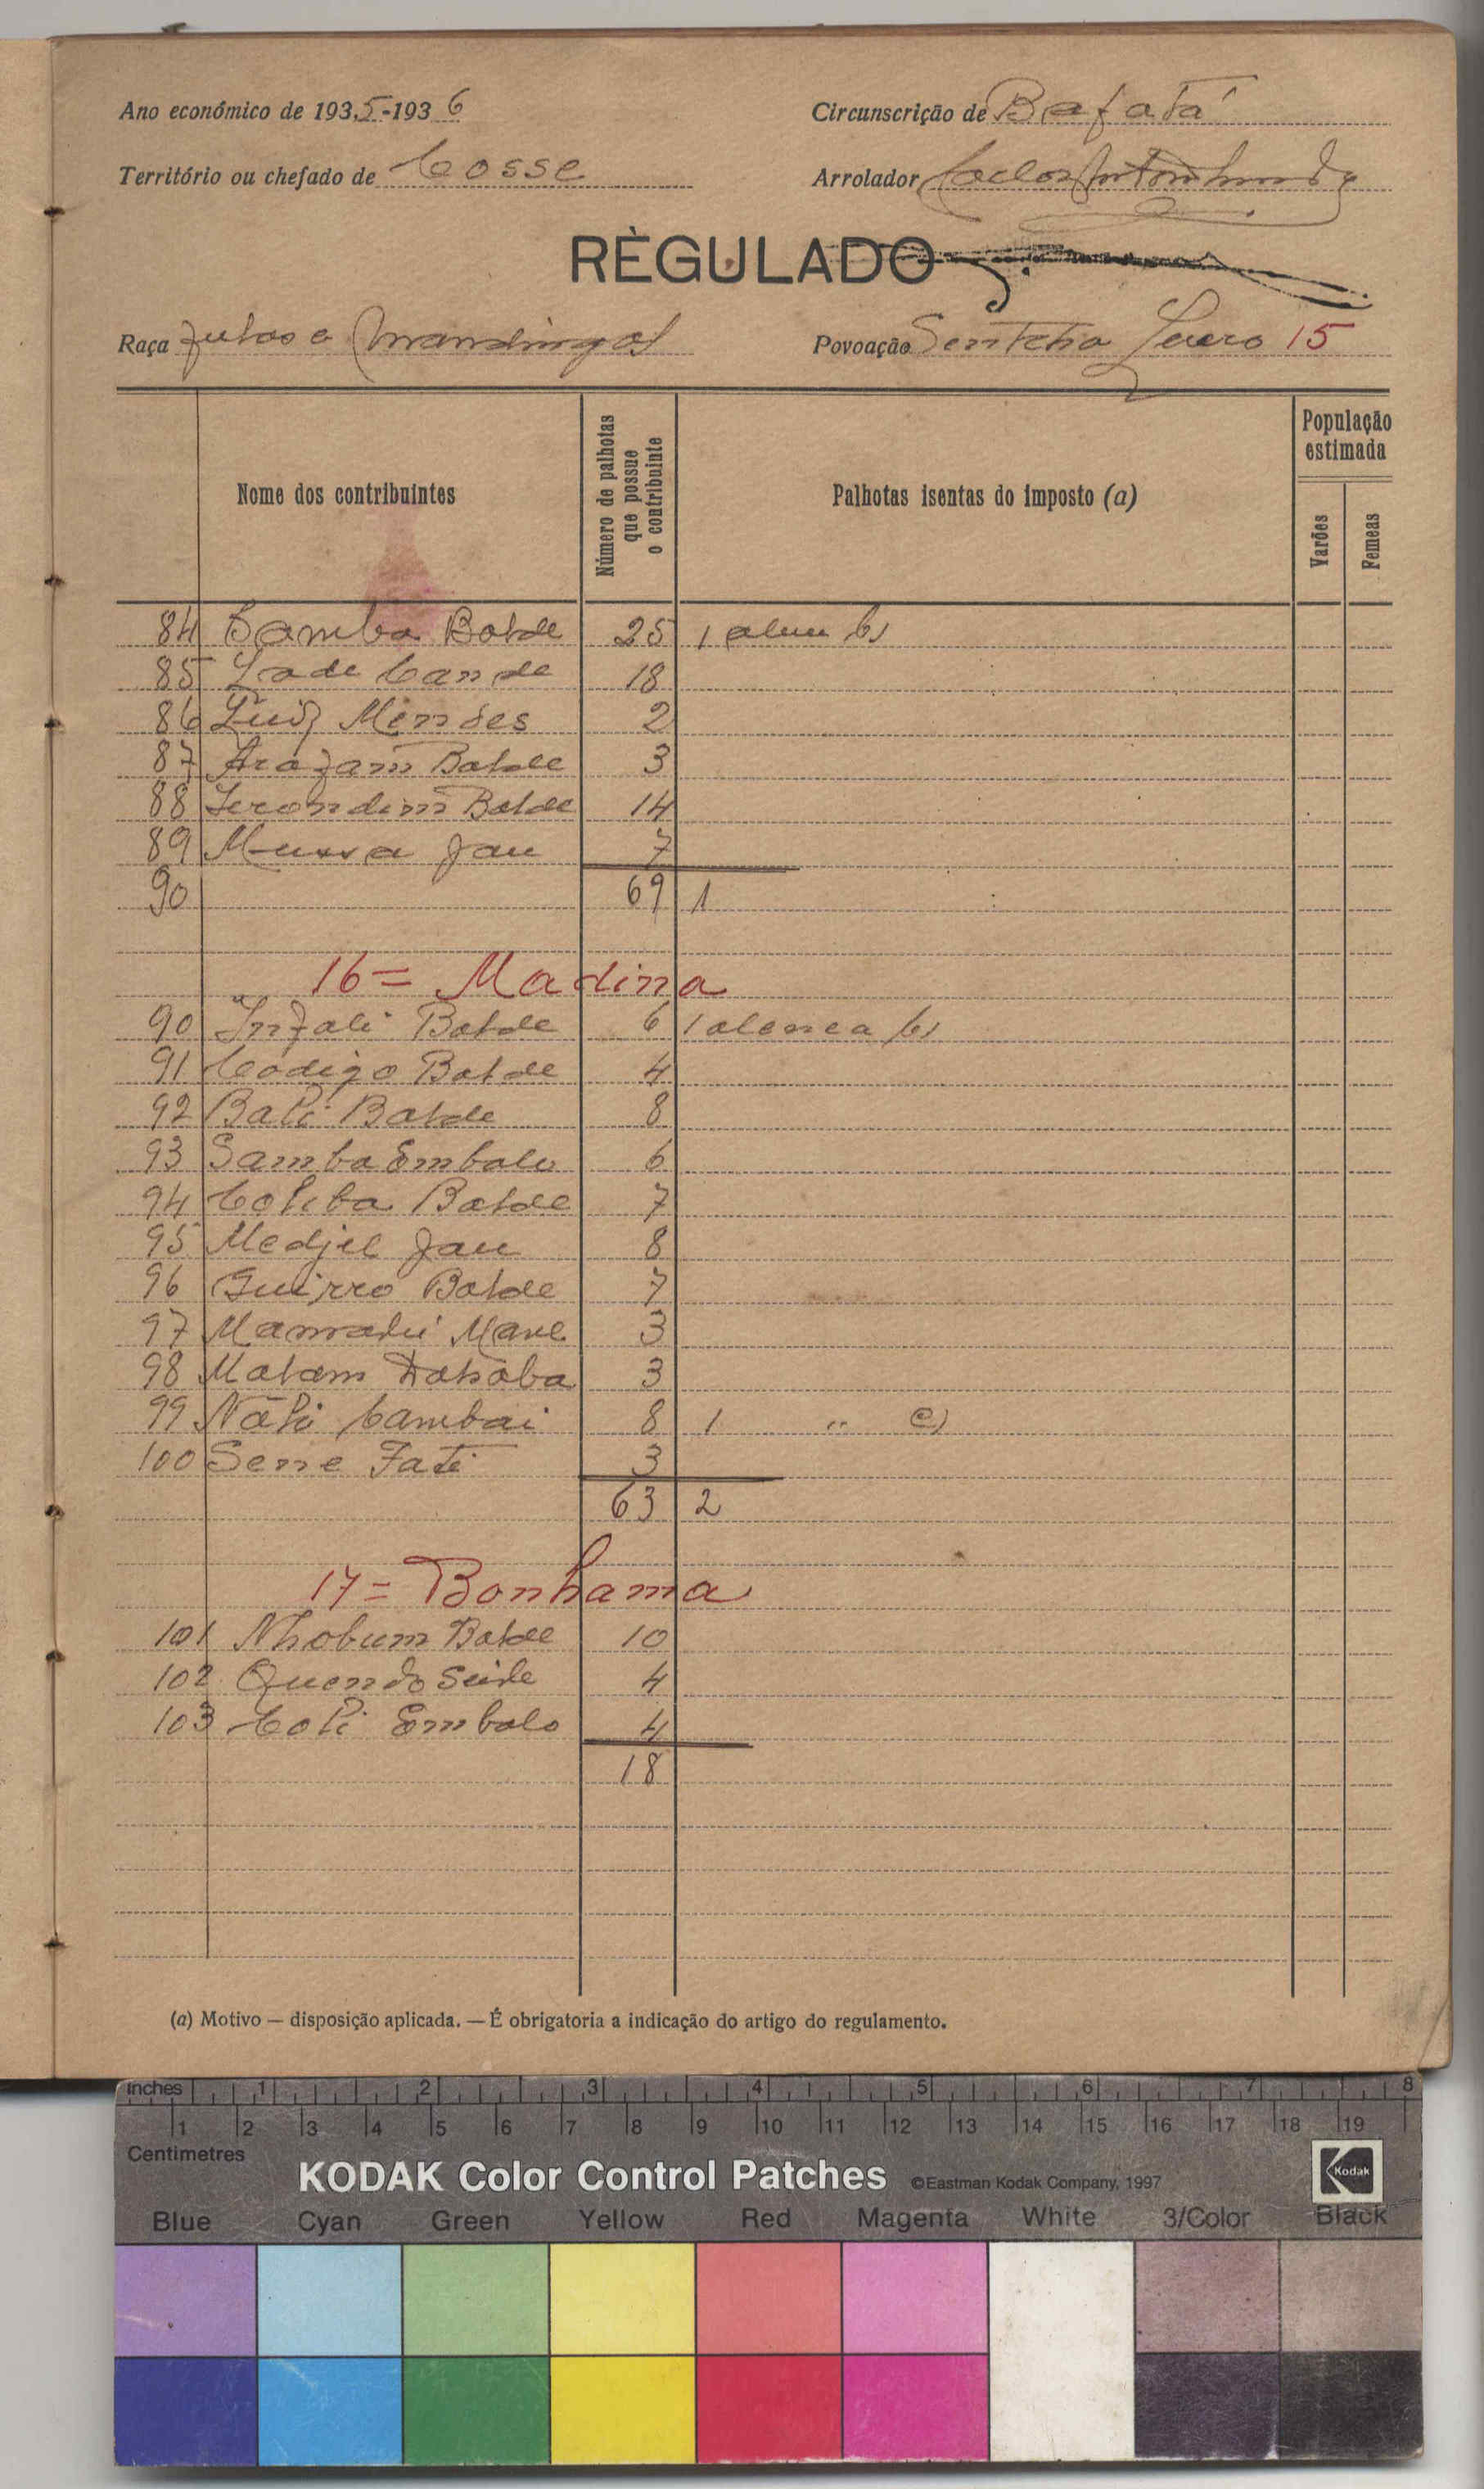 Ano económico de 1935-1936
Circunscrição de Bafatá
Território ou chefado de Cosse
Arrolador
RÈGULADO
Raça Fulas e Mandingas
Povoação Sentcha 15
Nome dos contribuintes
Número de palhotas que possue o contribuinte
Palhotas isentas do imposto (a)
População estimada
Varões
Femeas
84 Samba Balde 25 1 b)
85 Lade Cande 18
86 Luiz Mendes 2
87 Arafam Balde 3
88 Balde 14
89 Mussa Jau 7
90 69 1
16 = Madina
90 Infali Balde 6 1 alenea b)
91 Codigo Balde 4
92 Bali Balde 8
93 Samba Embalo 6
94 Coliba Balde 7
95 Medjel Jau 8
96 Guirro Balde 7
97 Mamadú Mane 3
98 Malam Dahaba 3
99 Náli Cambai 8 1 " e)
100 Sene Fati 3
63 2
17 = Bonhama
101 Nhobum Balde 10
102 Quendo Seide 4
103 Coli Embalo 4
18
(a) Motivo — disposição aplicada. — É obrigatoria a indicação do artigo do regulamento.
inches 1 2 3 4 5 6 7 8
1 2 3 4 5 6 7 8 9 10 11 12 13 14 15 16 17 18 19
Centimetres
KODAK Color Control Patches ©Eastman Kodak Company, 1997 Kodak
Blue Cyan Green Yellow Red Magenta White 3/Color Black